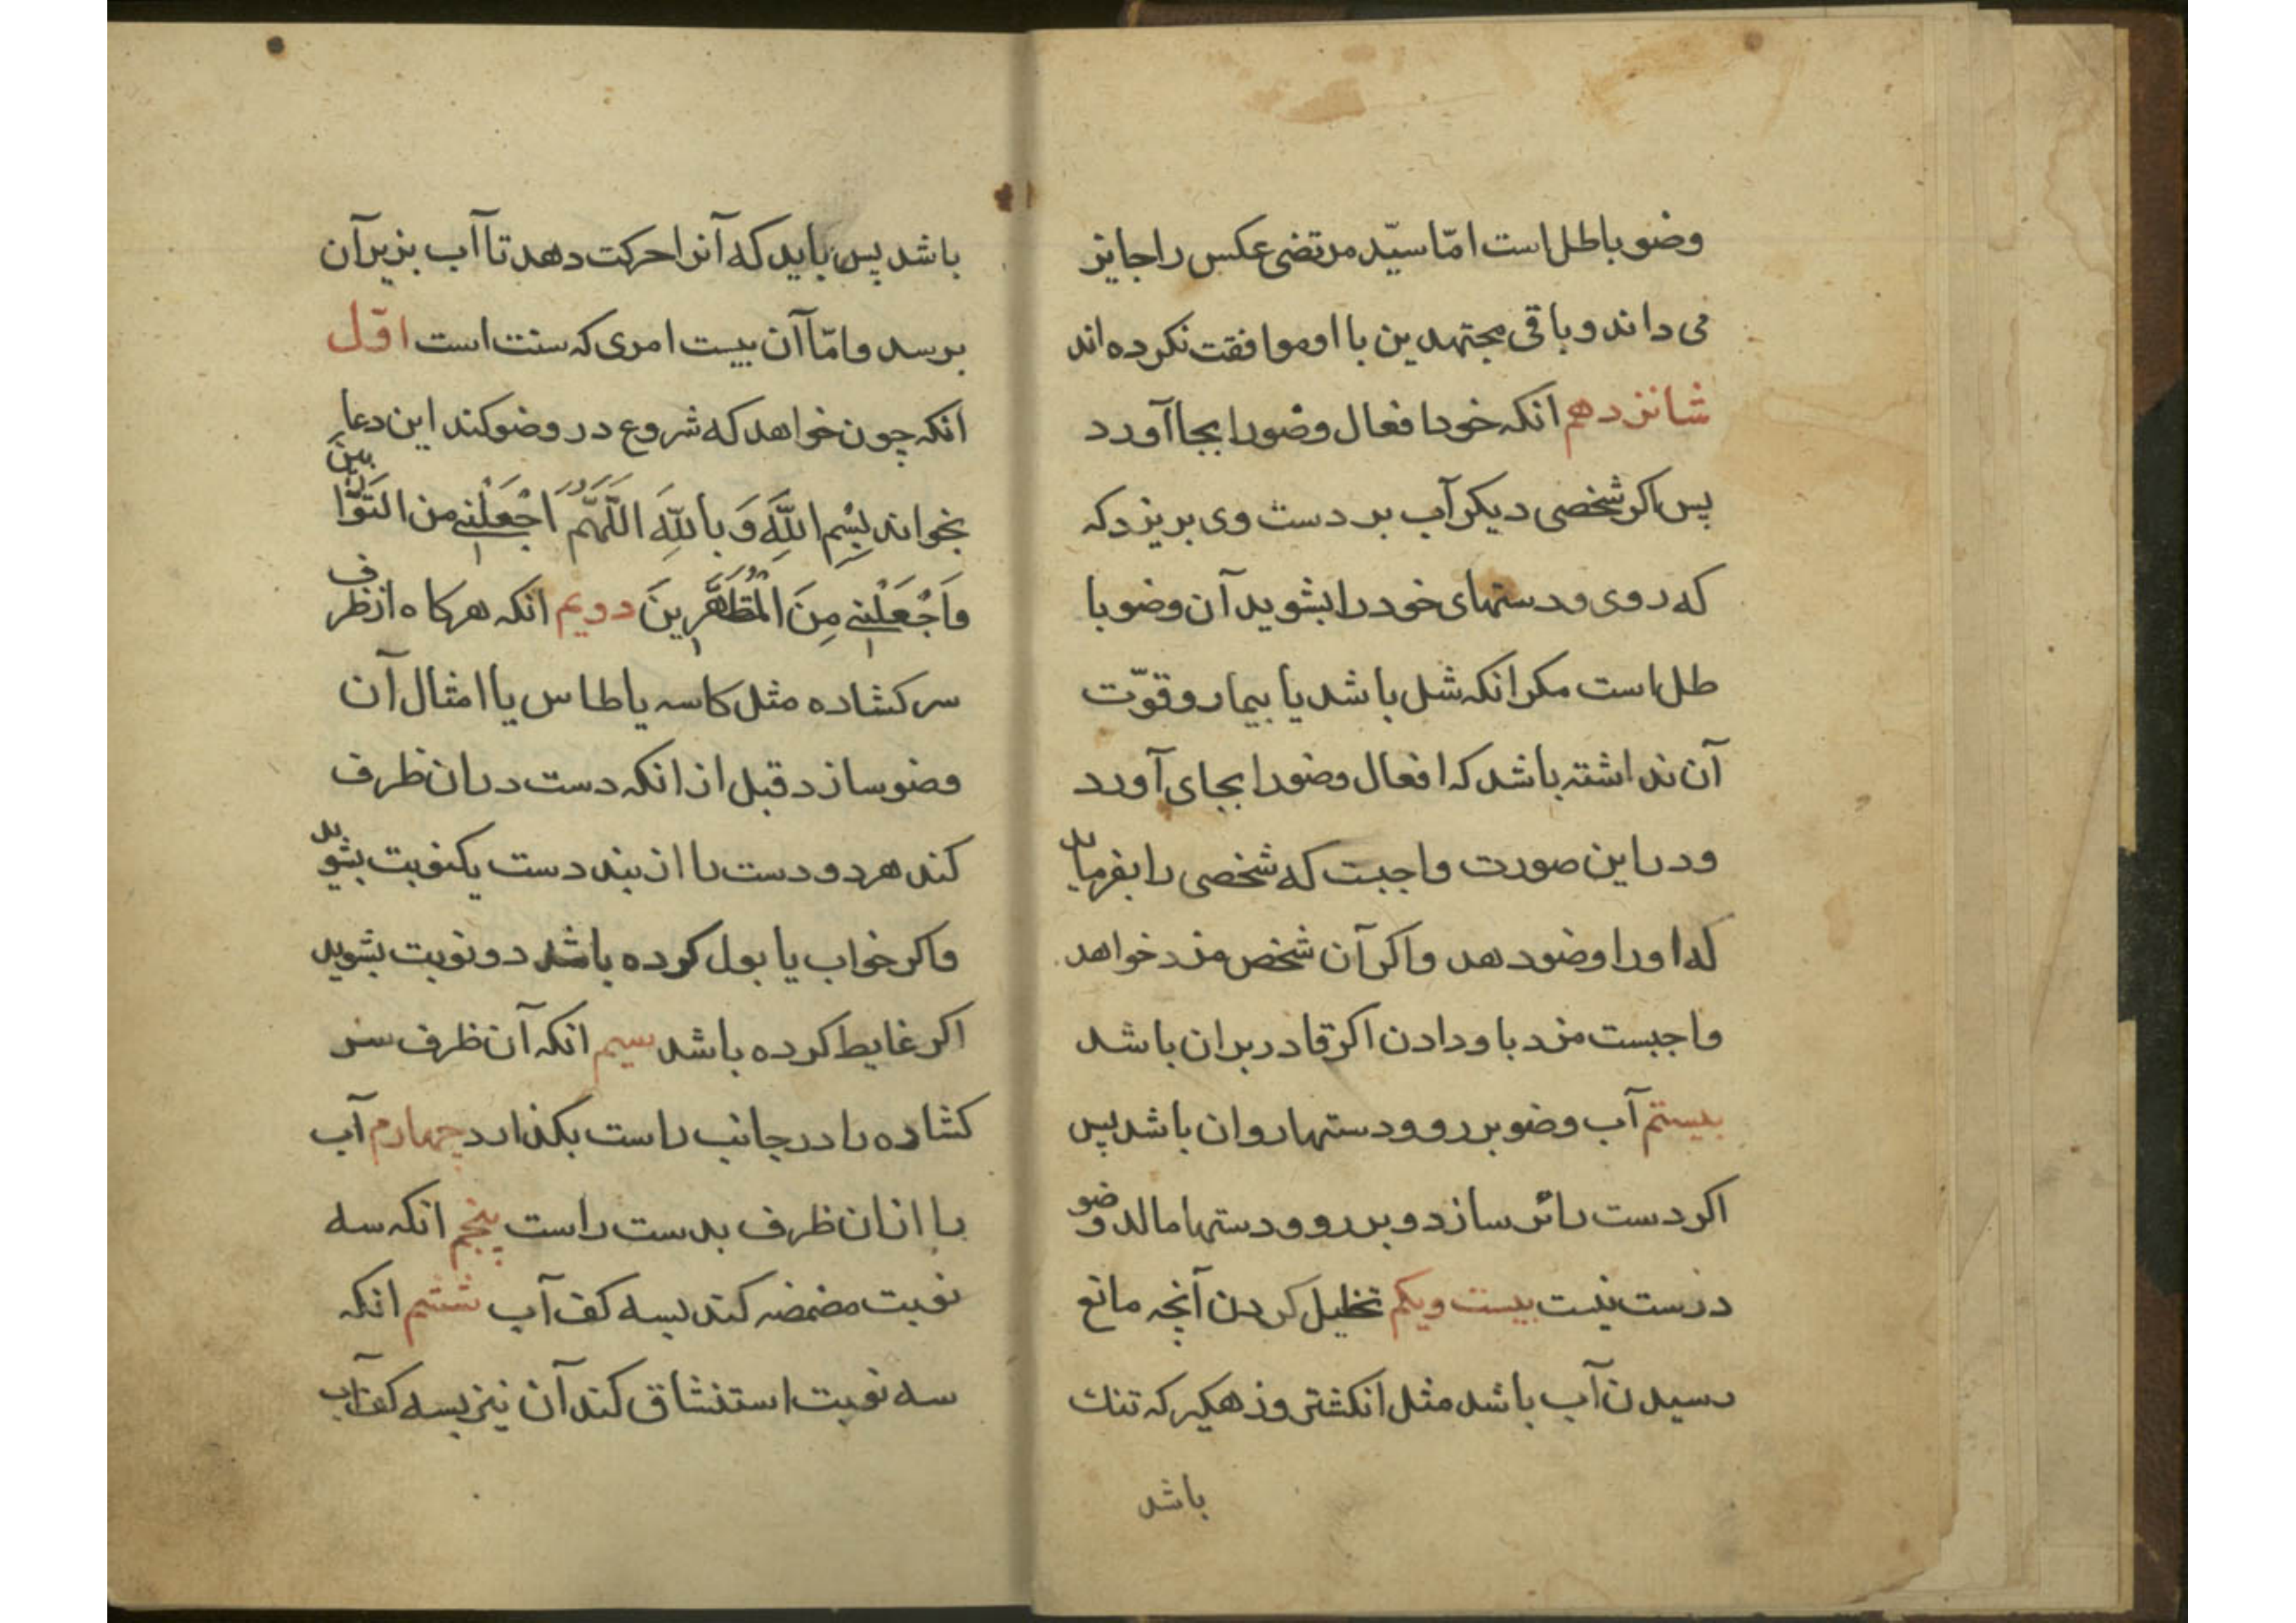 وضو باطل است امّا سیّد مرتضی عکس را جایز
می داند و باقی مجتهدین با او موافقت نکرده اند
شانزدهم انکه خود افعال وضو را بجا آورد
پس اکر شخصی دیکر آب بر دست وی بریزد که
که روی و دستهای خود را بشوید آن وضو با
طل است مکر انکه شل باشد یا بیمار و قوّت
آن نداشته باشد که افعال وضو را بجای آورد
و در این صورت واجبت که شخصی را بفرماید
که او را وضو دهد و اکر آن شخص مزد خواهد
واجبست مزد باو دادن اکر قادر بران باشد
بیستم آب وضو بر رو و دستها روان باشد پس
اکر دست را تر سازد و بر رو و دستها مالد وضو
درست نیست بیست و یکم تخلیل کردن آنچه مانع
رسیدن آب باشد مثل انکشتر و زهکیر که تنک
باشد
باشد پس باید که آنرا حرکت دهد تا آب بزیر آن
برسد و امّا آن بیست امری که سنت است اوّل
انکه چون خواهد که شروع در وضو کند این دعا
بخواند بِسْمِ اللَّهِ وَ بِاللَّهِ اللَّهُمَّ اجْعَلْنِي من التَوّابینَ
وَاجْعَلْنِي مِنَ الْمُتَطَهِّرِينَ دویم انکه هرکاه از ظرف
سر کشاده مثل کاسه یا طاس یا امثال آن
وضو سازد قبل از انکه دست در ان ظرف
کند هر دو دست را از بند دست یکنوبت بشوید
و اکر خواب یا بول کرده باشد دو نوبت بشوید
اکر غایط کرده باشد سیم انکه آن ظرف سر
کشاده را در جانب راست بکذارد چهارم آب
را از ان ظرف بدست راست پنجم انکه سه
نوبت مضمضه کند بسه کف آب ششم انکه
سه نوبت استنشاق کند آن نیز بسه کف آب